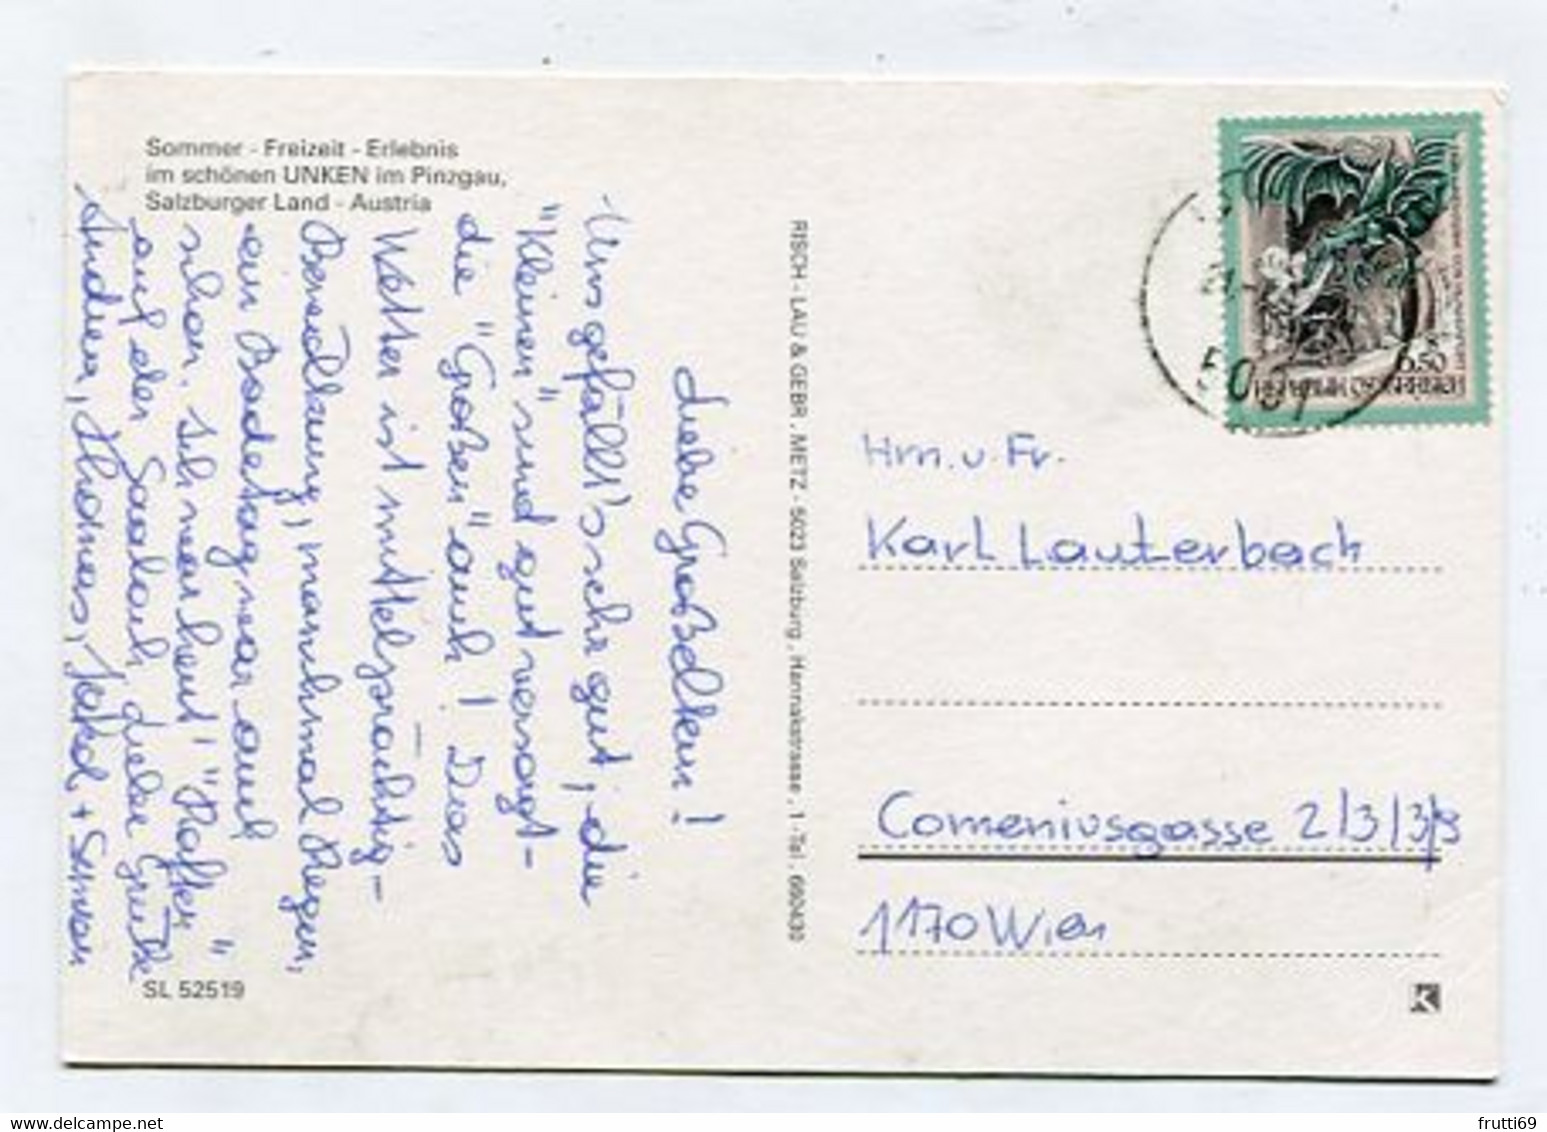 Sommer - Freizeit - Erlebnis
im schönen UNKEN im Pinzgau,
Salzburger Land - Austria
Liebe Großeltern!
Uns gefällt's sehr gut, die
"Kleinen" sind gut versorgt -
die "Großen" auch! Das
Wetter ist mittelprächtig -
Bewölkung, manchmal Regen,
ein Badetag war auch
schon. Ich war heut' "Raften"
auf der Saalach, Liebe Grüße
Thomas, Jakob + Simon
SL 52519
RISCH - LAU & GEBR. METZ - 5023 Salzburg, Hannakstrasse, 1 - Tel - 660430
6.50
REPUBLIK ÖSTERREICH
Hrn. u. Fr.
Karl Lauterbach
Comeniusgasse 2/3/3/9
1170 Wien
K
frutti69